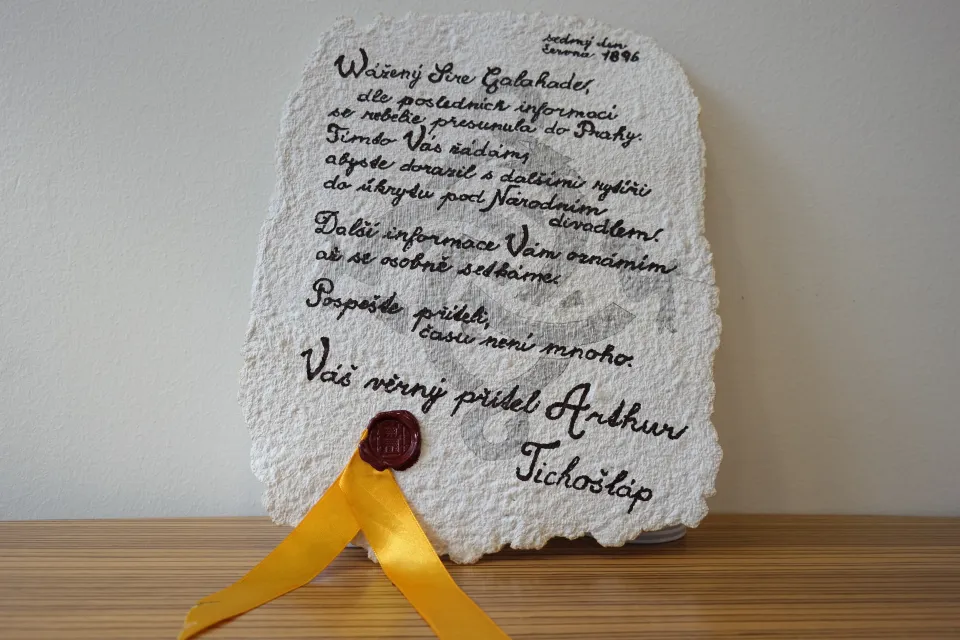 sedmý den
června 1896
Vážený Sire Galahade,
dle posledních informací
se rebelie přesunula do Prahy.
Tímto Vás žádám,
abyste dorazil s dalšími rytíři
do úkrytu pod Národním
divadlem.
Další informace Vám oznámím
až se osobně setkáme.
Pospěšte příteli,
času není mnoho.
Váš věrný přítel Arthur
Tichošláp